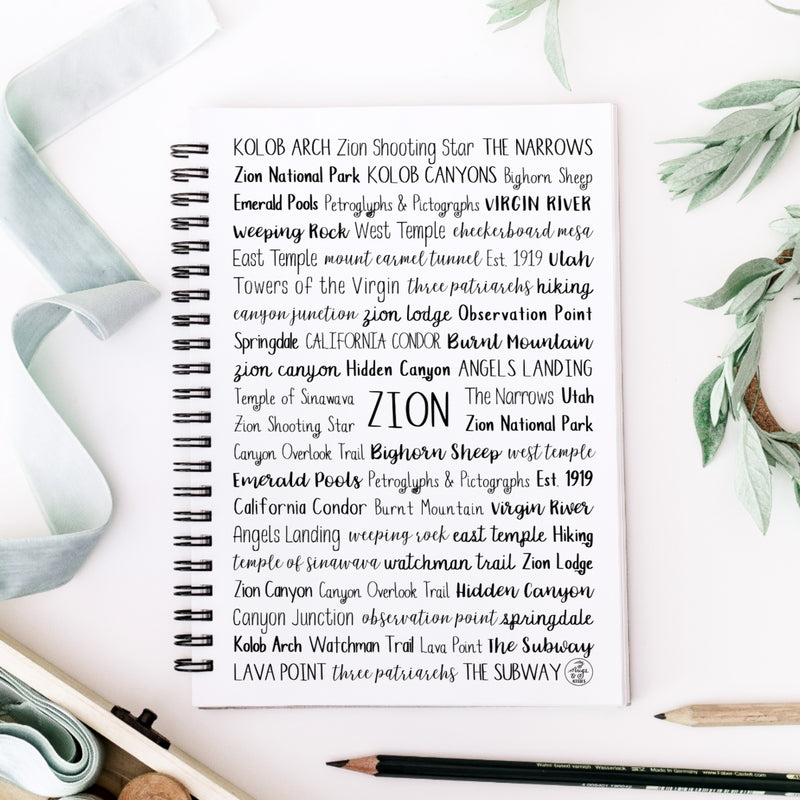 KOLOB ARCH Zion Shooting Star THE NARROWS
Zion National Park KOLOB CANYONS Bighorn Sheep
Emerald Pools Petroglyphs & Pictographs VIRGIN RIVER
Weeping Rock West Temple checkerboard mesa
East Temple mount carmel tunnel Est. 1919 Utah
Towers of the Virgin three patriarchs hiking
canyon junction zion lodge Observation Point
Springdale CALIFORNIA CONDOR Burnt Mountain
zion canyon Hidden Canyon ANGELS LANDING
Temple of Sinawava ZION The Narrows Utah
Zion Shooting Star Zion National Park
Canyon Overlook Trail Bighorn Sheep west temple
Emerald Pools Petroglyphs & Pictographs Est. 1919
California Condor Burnt Mountain Virgin River
Angels Landing weeping rock east temple Hiking
temple of sinawava watchman trail Zion Lodge
Zion Canyon Canyon Overlook Trail Hidden Canyon
Canyon Junction observation point springdale
Kolob Arch Watchman Trail Lava Point The Subway
LAVA POINT three patriarchs THE SUBWAY
Made in Germany www.Faber-Castell.com